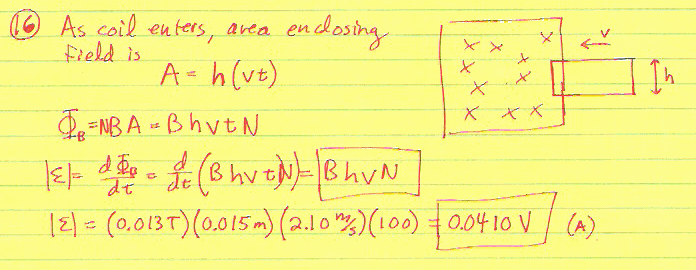 (16) As coil enters, area enclosing
field is
A = h(vt)
Φ_B = NBA = BhvtN
|ε| = dΦ_B/dt = d/dt (BhvtN) = BhvN
|ε| = (0.013T)(0.015m)(2.10 m/s)(100) = 0.0410 V (A)
x x x
v
x x
x x
h
x x x